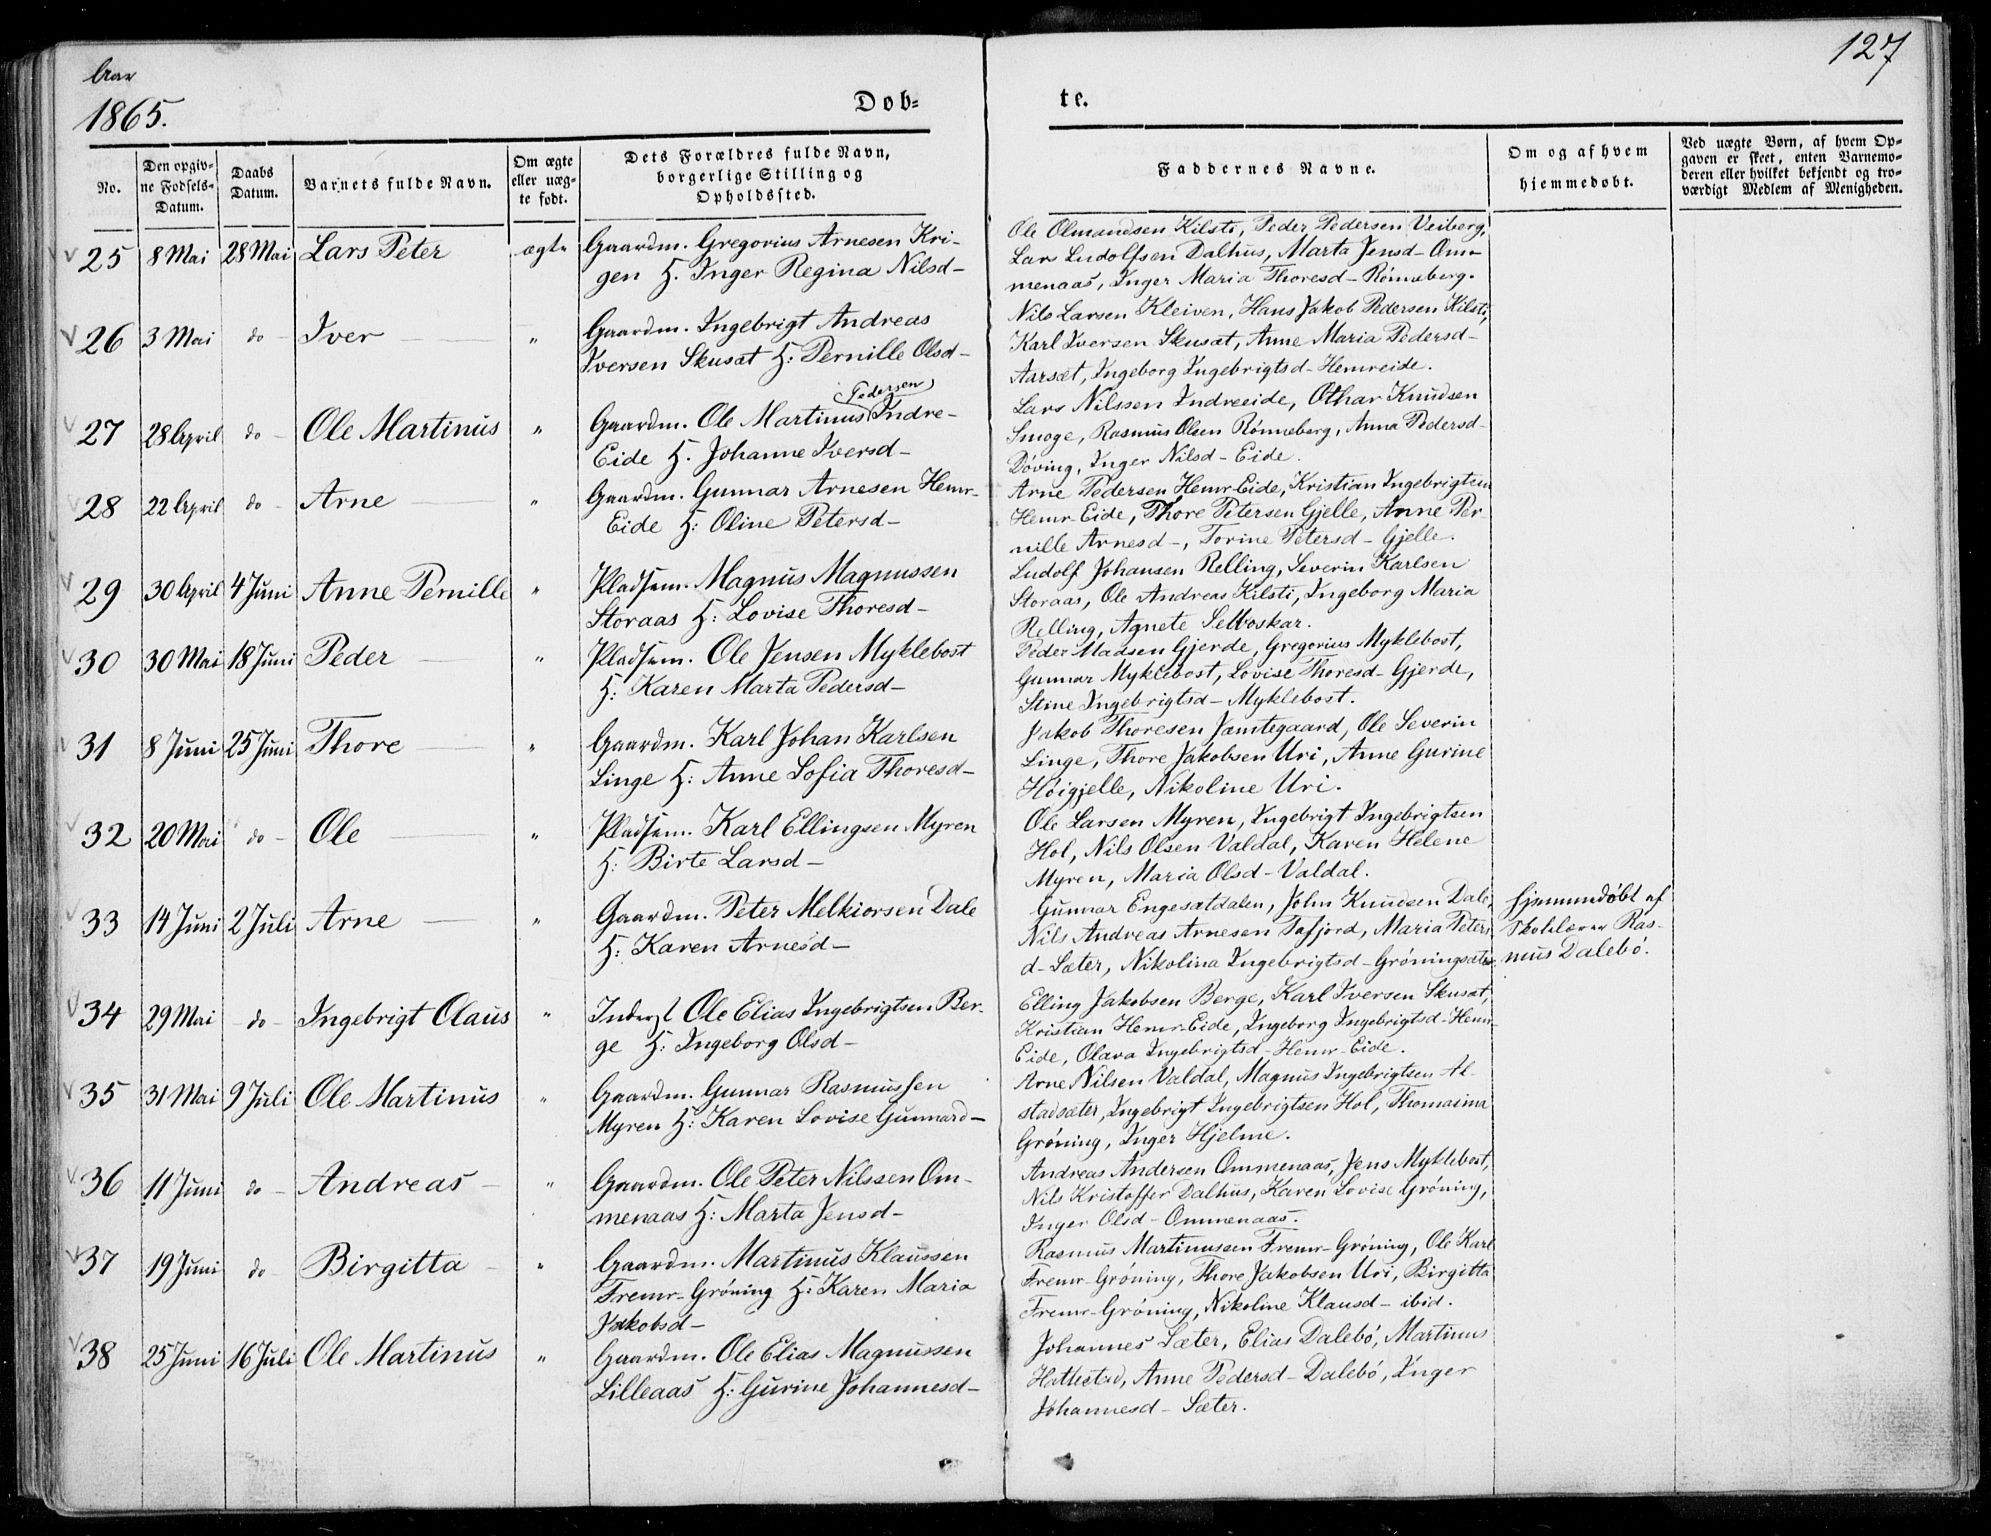 127
Aar
1865.
Døb-
te.
No.
Den opgiv-
ne Fødsels-
Datum.
Daabs
Datum.
Barnets fulde Navn.
Om ægte
eller uæg-
te født.
Dets Forældres fulde Navn,
borgerlige Stilling og
Opholdssted.
Faddernes Navne.
Om og af hvem
hjemmedøbt.
Ved uægte Børn, af hvem Op-
gaven er skeet, enten Barnemo-
deren eller hvilket bekjendt og tro-
værdigt Medlem af Menigheden.
25 8 Mai 28 Mai Lars Peter ægte
Gaardm. Gregorius Arnesen Kri-
gen H. Inger Regina Nilsd-
Ole Olmandsen Kilsti, Peder Pedersen Veiberg,
Lars Ludolfsen Dalhus, Marta Jensd- Om-
menaas, Inger Maria Thoresd- Rønneberg.
26 3 Mai do - Iver "
Gaardm. Ingebrigt Andreas
Iversen Skusat H: Pernille Olsd-
Nils Larsen Kleiven, Hans Jakob Pedersen Kilsti,
Karl Iversen Skusat, Anne Maria Pedersd-
Aarsæt, Ingeborg Ingebrigtsd- Hemreide.
27 28 April do - Ole Martinus "
Pedersen
Gaardm. Ole Martinus Indre-
Eide H. Johanne Iversd-
Lars Nilssen Indreeide, Othar Knudsen
Smoge, Rasmus Olsen Rønneberg, Anna Pedersd-
Døving, Inger Nilsd- Eide.
28 22 April do - Arne "
Gaardm. Gunnar Arnesen Hemr-
Eide H: Oline Petersd-
Arne Pedersen Hemr-Eide, Kristian Ingebrigtsen
Hemr-Eide, Thore Petersen Gjelle, Anne Per-
nille Arnesd-, Torine Petersd- Gjelle.
29 30 April 4 Juni Anne Pernille "
Pladsm. Magnus Magnussen
Storaas H: Lovise Thoresd-
Ludolf Johansen Relling, Severin Karlsen
Storaas, Ole Andreas Kilsti, Ingeborg Maria
Relling, Agnete Selboskar.
30 30 Mai 18 Juni Peder "
Pladsm. Ole Jensen Myklebost
H: Karen Marta Pedersd-
Peder Madsen Gjerde, Gregorius Myklebost,
Gunnar Myklebost, Lovise Thoresd- Gjerde,
Stine Ingebrigtsd- Myklebost.
31 8 Juni 25 Juni Thore "
Gaardm. Karl Johan Karlsen
Linge H: Anne Sofia Thoresd-
Jakob Thoresen Jamtegaard, Ole Severin
Linge, Thore Jakobsen Uri, Anne Gurine
Høigjelle, Nikoline Uri.
32 20 Mai do - Ole "
Pladsm. Karl Ellingsen Myren
H: Birte Larsd-
Ole Larsen Myren, Ingebrigt Ingebrigtsen
Hol, Nils Olsen Valdal, Karen Helene
Myren, Maria Olsd- Valdal.
33 14 Juni 2 Juli Arne "
Gaardm. Peter Melkiorsen Dale
H: Karen Arnesd-
Gunnar Engesætdalen, John Knudsen Dale,
Nils Andreas Arnesen Tafjord, Maria Peters
d- Sæter, Nikolina Ingebrigtsd- Grøningsæter.
Hjemmedøbt af
Skolelærer Ras-
mus Dalebø.
34 29 Mai - do - Ingebrigt Olaus "
Inderst Ole Elias Ingebrigtsen Ber-
ge H: Ingeborg Olsd-
Elling Jakobsen Berge, Karl Iversen Skusat,
Kristian Hemr-Eide, Ingeborg Ingebrigtsd- Hemr-
Eide, Olava Ingebrigtsd- Hemr-Eide.
35 31 Mai 9 Juli Ole Martinus "
Gaardm. Gunnar Rasmussen
Myren H: Karen Lovise Gunnard-
Arne Nilsen Valdal, Magnus Ingebrigtsen Al-
stadsæter, Ingebrigt Ingebrigtsen Hol, Thomaina
Grøning, Inger Hjelme.
36 11 Juni do - Andreas "
Gaardm. Ole Peter Nilssen Om-
menaas H: Marta Jensd-
Andreas Andersen Ommenaas, Jens Myklebost,
Nils Kristoffer Dalhus, Karen Lovise Grøning,
Inger Olsd- Ommenaas.
37 19 Juni do - Birgitta "
Gaardm. Martinus Klaussen
Fremr-Grøning H: Karen Maria
Jakobsd-
Rasmus Martinussen Fremr-Grøning, Ole Karl
Fremr-Grøning, Thore Jakobsen Uri, Birgitta
Fremr-Grøning, Nikoline Klausd- ibid.
38 25 Juni 16 Juli Ole Martinus "
Gaardm. Ole Elias Magnussen
Lilleaas H: Gurine Johannesd-
Johannes Sæter, Elias Dalebø, Martinus
Hattestad, Anne Pedersd- Dalebø, Inger
Johannesd- Sæter.